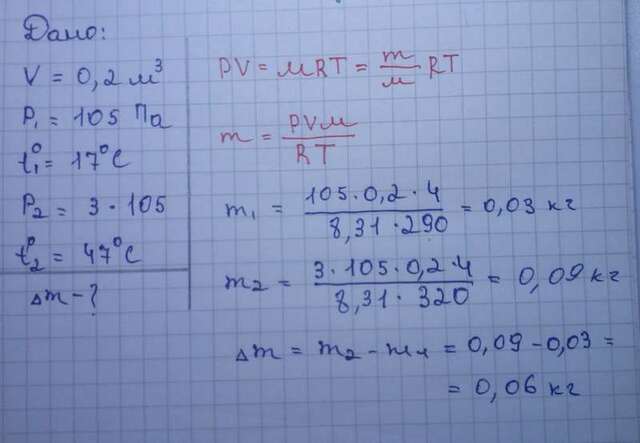 Дано:
V = 0,2 м³
P₁ = 105 Па
t₁° = 17°C
P₂ = 3·105
t₂° = 47°C
Δm - ?
PV = μRT = m/μ RT
m = PVμ/RT
m₁ = 105·0,2·4/8,31·290 = 0,03 кг
m₂ = 3·105·0,2·4/8,31·320 = 0,09 кг
Δm = m₂ - m₁ = 0,09 - 0,03 =
= 0,06 кг